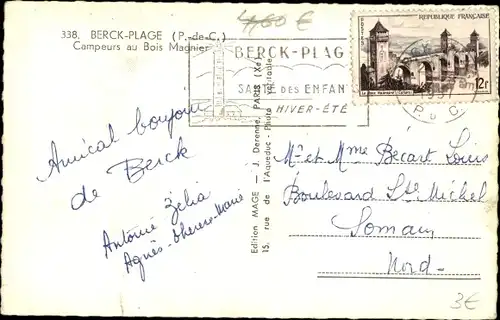 338. BERCK-PLAGE (P.-de-C.)
Campeurs au Bois Magnier
4,60 €
BERCK-PLAG
SANTÉ DES ENFAN
HIVER-ÉTÉ
RÉPUBLIQUE FRANÇAISE
POSTES
12f
Amical bonjour
de Berck
Antoine Zélia
Agnès-Thérèse-Marie
Edition MAGE — J. Derenne, PARIS (Xe)
15, rue de l'Aqueduc - Photo véritable
Mr et Mme Bécart Louis
Boulevard Ste Michel
Somain
Nord-
3€